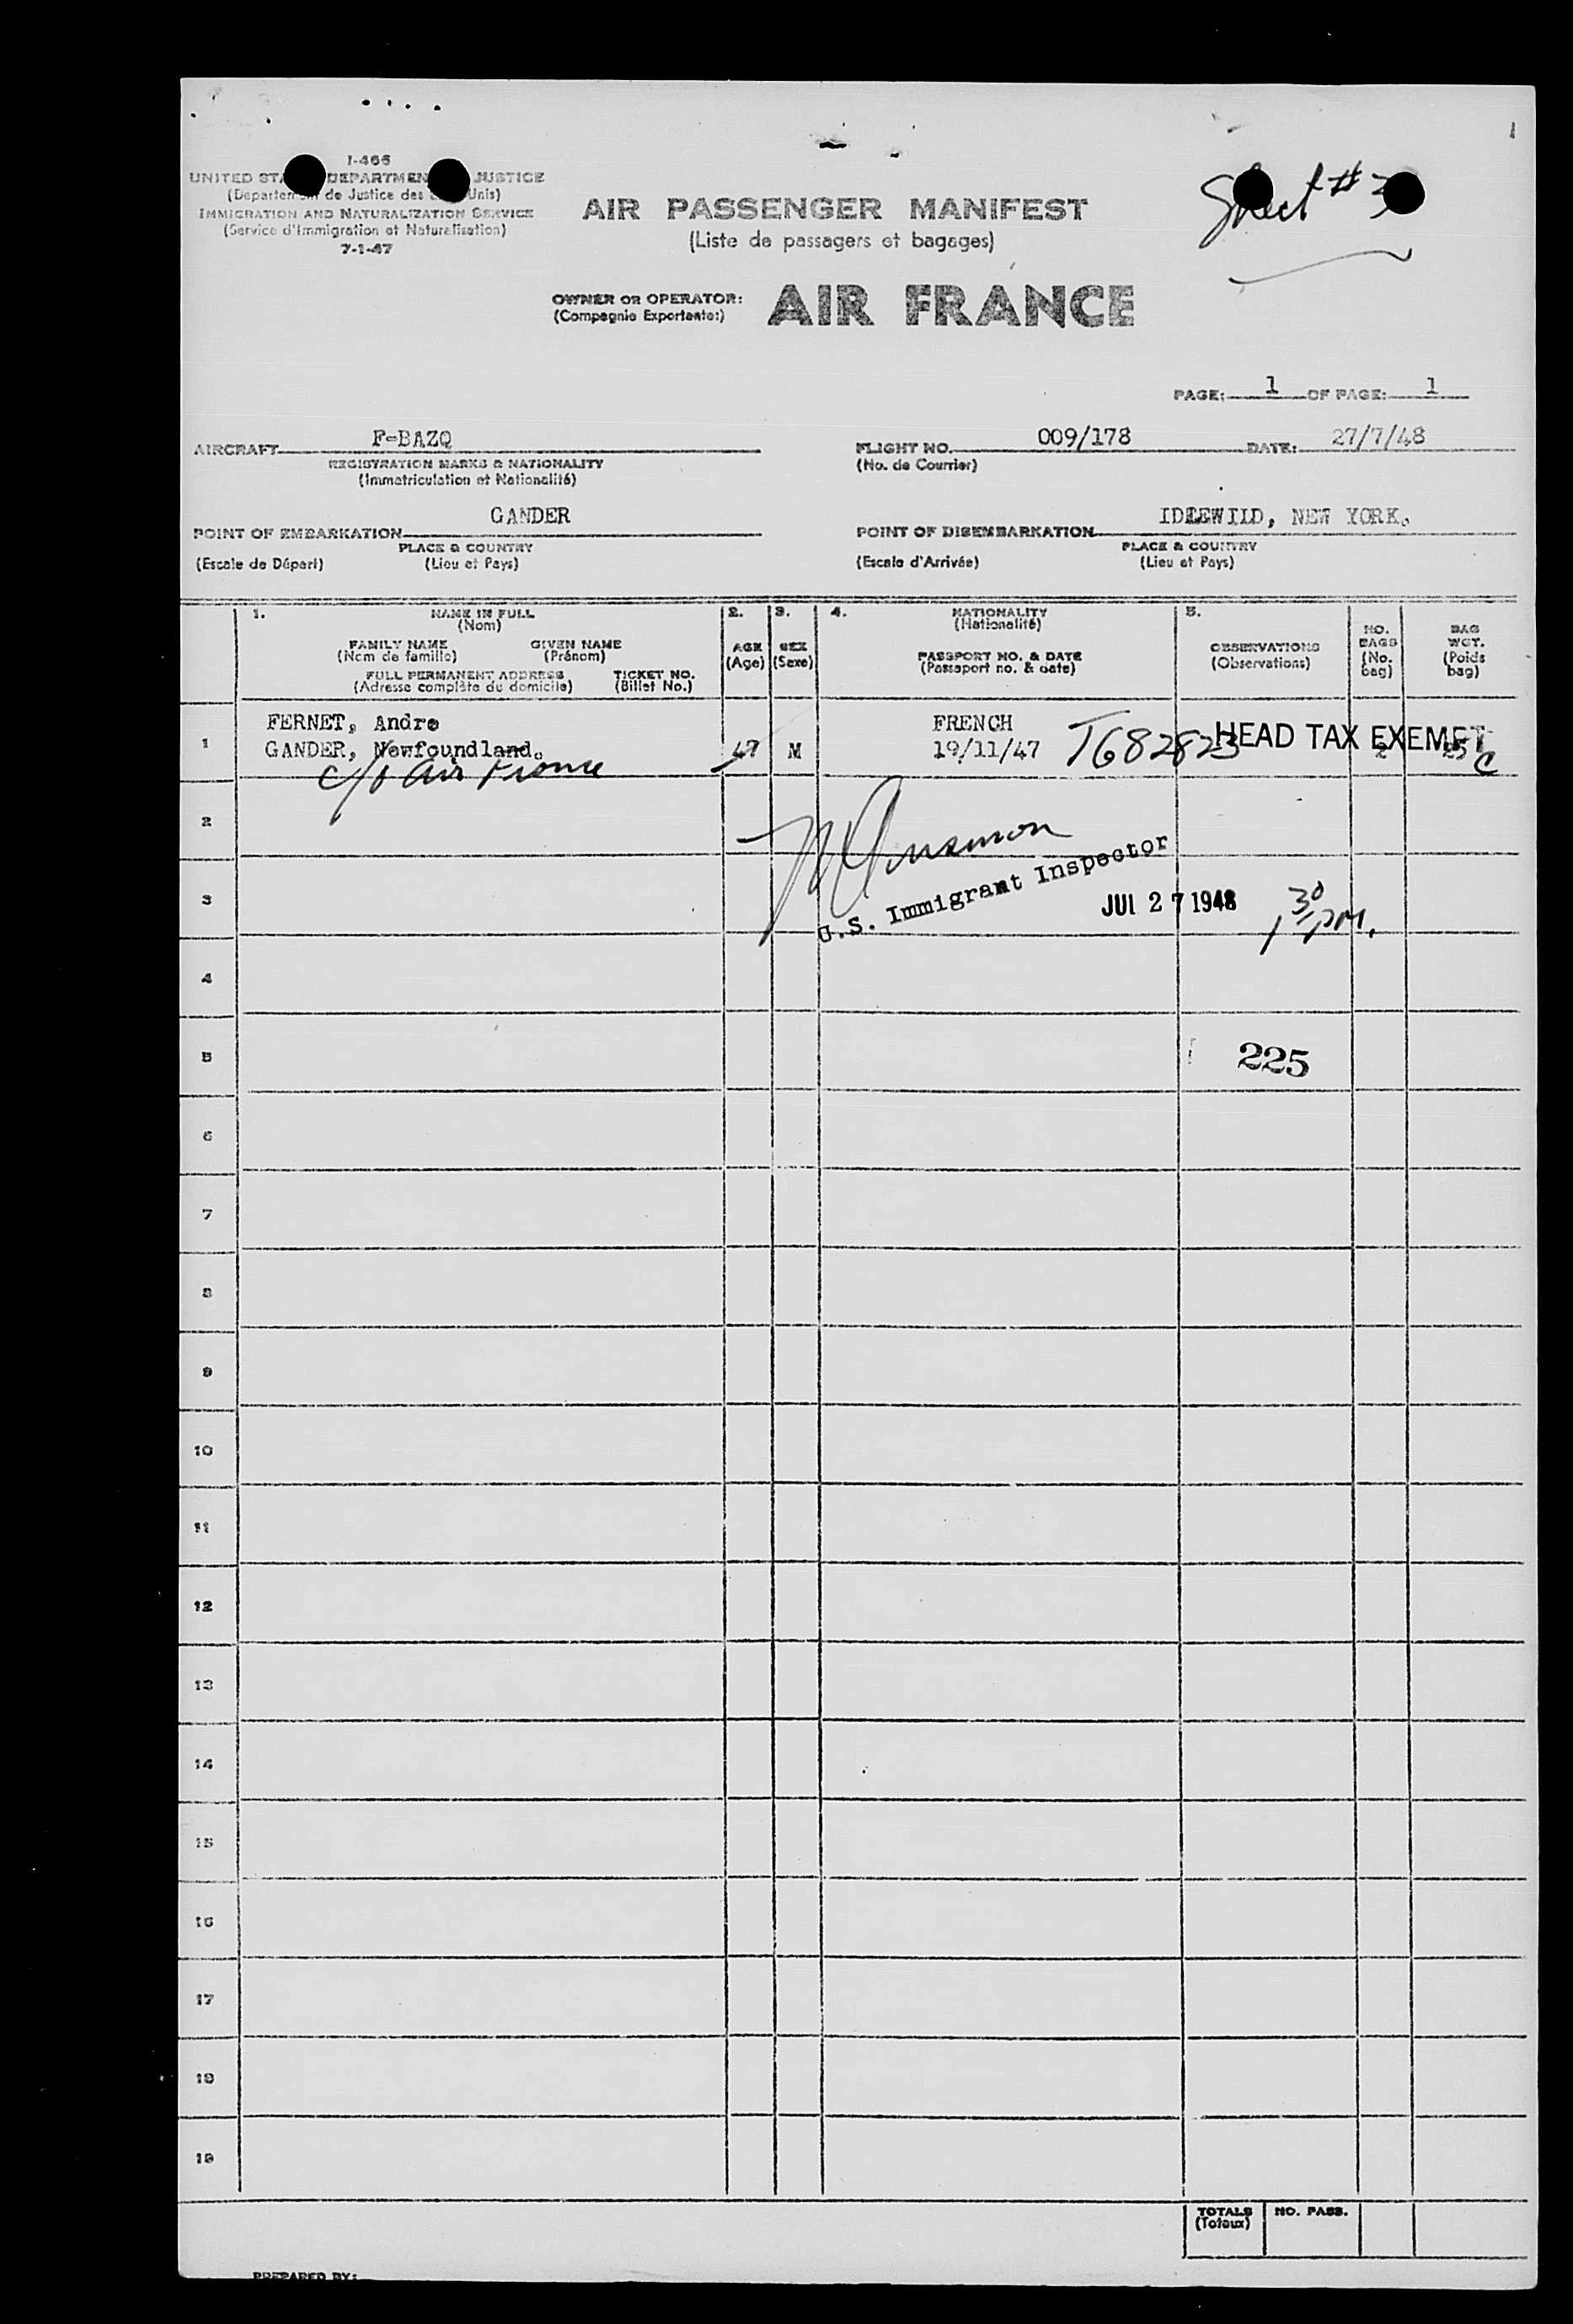 I-466
UNITED STA DEPARTMEN JUSTICE
(Departem de Justice des Unis)
IMMIGRATION AND NATURALIZATION SERVICE
(Service d'Immigration et Naturalisation)
7-1-47
AIR PASSENGER MANIFEST
(Liste de passagers et bagages)
Sheet # 3
OWNER OR OPERATOR: AIR FRANCE
(Compagnie Exportante:)
PAGE: 1 OF PAGE: 1
AIRCRAFT F-BAZQ
REGISTRATION MARKS & NATIONALITY
(Immatriculation et Nationalité)
FLIGHT NO. 009/178 DATE: 27/7/48
(No. de Courrier)
POINT OF EMBARKATION GANDER
PLACE & COUNTRY
(Escale de Départ) (Lieu et Pays)
POINT OF DISEMBARKATION IDLEWILD, NEW YORK.
PLACE & COUNTRY
(Escale d'Arrivée) (Lieu et Pays)
1. NAME IN FULL
(Nom)
FAMILY NAME GIVEN NAME
(Nom de famille) (Prénom)
FULL PERMANENT ADDRESS TICKET NO.
(Adresse complète du domicile) (Billet No.)
2.
AGE
(Age)
3.
SEX
(Sexe)
4. NATIONALITY
(Nationalité)
PASSPORT NO. & DATE
(Passport no. & date)
5.
OBSERVATIONS
(Observations)
NO.
BAGS
(No.
bag)
BAG
WGT.
(Poids
bag)
1
FERNET, Andre
GANDER, Newfoundland.
c/o Air France
47 M
FRENCH
19/11/47 T682823
HEAD TAX EXEMPT
2 25 C
2
U.S. Immigrant Inspector
3
JUL 27 1948 1 30 PM.
4
5
225
6
7
8
9
10
11
12
13
14
15
16
17
18
19
TOTALS NO. PASS.
(Totaux)
PREPARED BY: